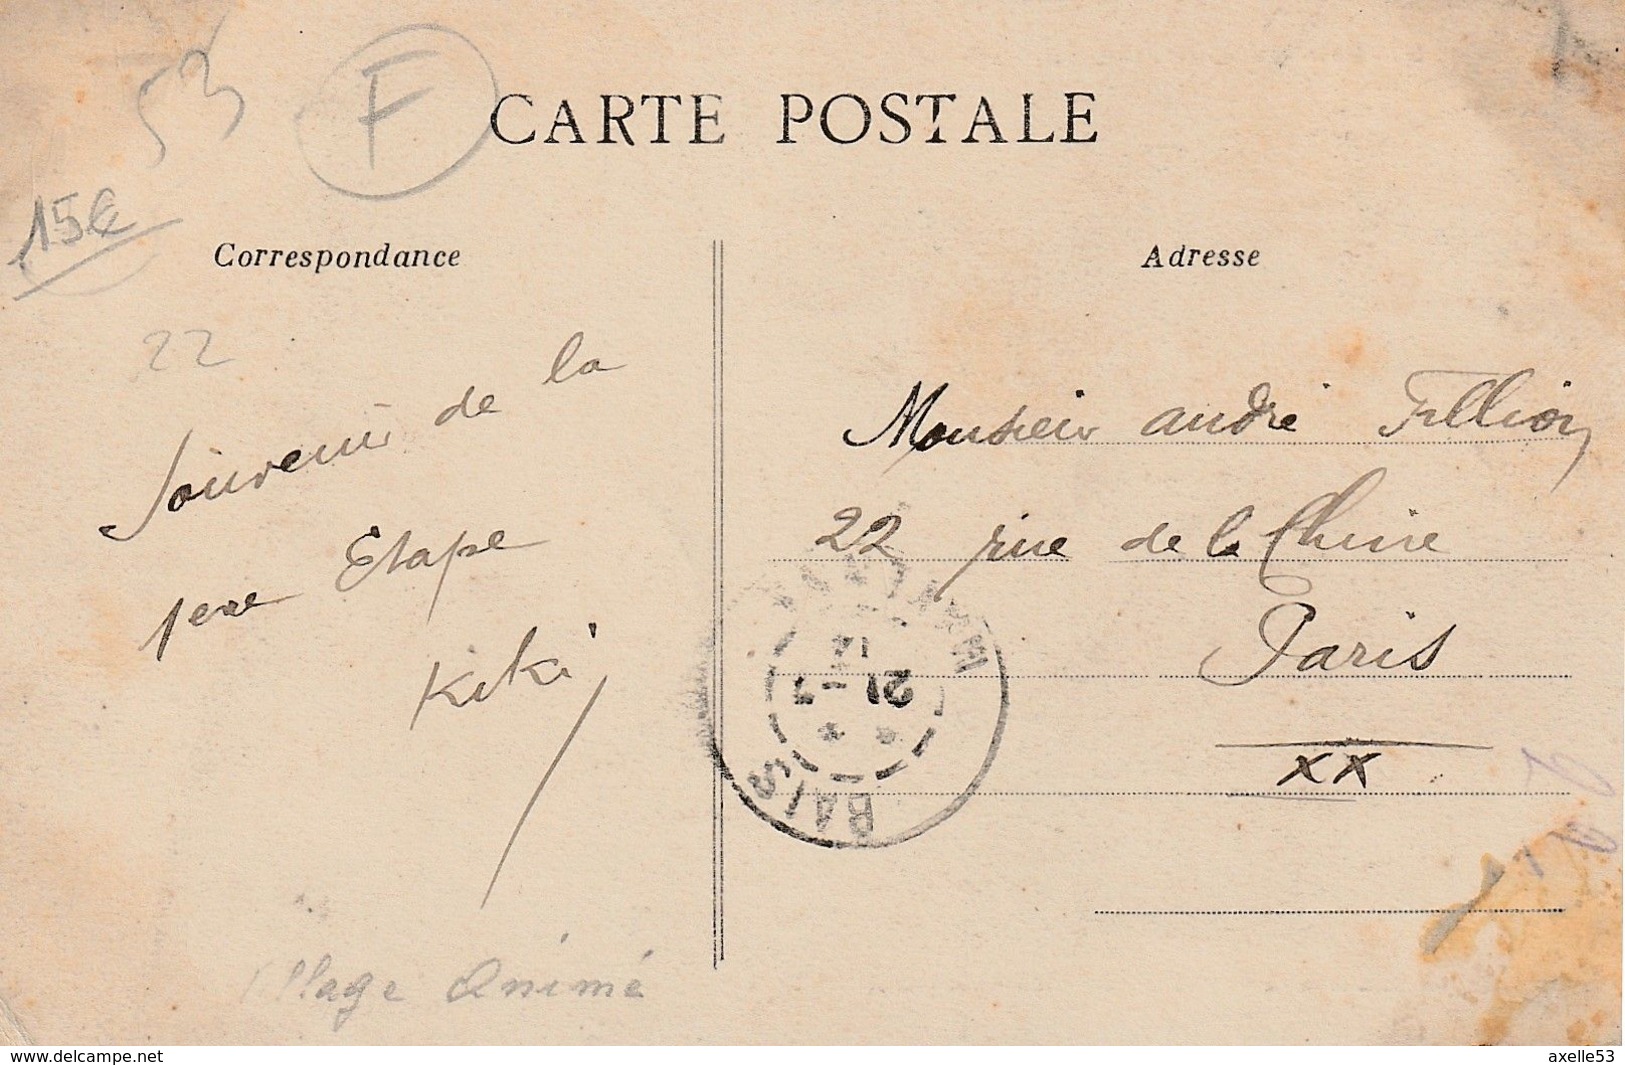 53
F
CARTE POSTALE
15€
Correspondance
Adresse
22
Souvenir de la
1ere Etape
Kiki
Monsieur andré Fillion
22 rue de la Chine
Paris
XX
BAIS
21
village animé
www.delcampe.net
axelle53